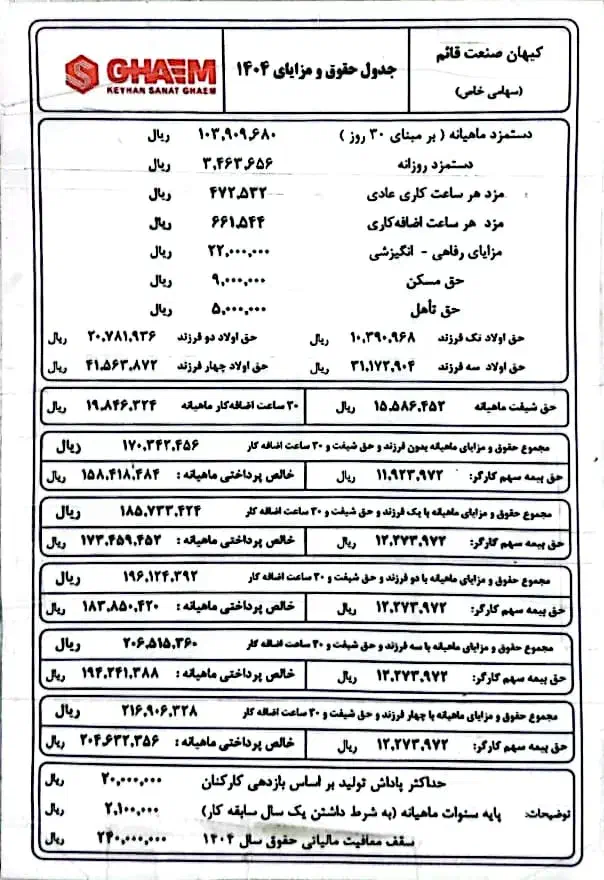 کیهان صنعت قائم
(سهامی خاص)
جدول حقوق و مزایای ۱۴۰۴
GHAEM
KEYHAN SANAT GHAEM
دستمزد ماهیانه ( بر مبنای ۳۰ روز ) ۱۰۳,۹۰۹,۶۸۰ ریال
دستمزد روزانه ۳,۴۶۳,۶۵۶ ریال
مزد هر ساعت کاری عادی ۴۷۲,۵۳۲ ریال
مزد هر ساعت اضافه‌کاری ۶۶۱,۵۴۴ ریال
مزایای رفاهی - انگیزشی ۲۲,۰۰۰,۰۰۰ ریال
حق مسکن ۹,۰۰۰,۰۰۰ ریال
حق تأهل ۵,۰۰۰,۰۰۰ ریال
حق اولاد تک فرزند ۱۰,۳۹۰,۹۶۸ ریال حق اولاد دو فرزند ۲۰,۷۸۱,۹۳۶ ریال
حق اولاد سه فرزند ۳۱,۱۷۲,۹۰۴ ریال حق اولاد چهار فرزند ۴۱,۵۶۳,۸۷۲ ریال
حق شیفت ماهیانه ۱۵,۵۸۶,۴۵۲ ریال ۳۰ ساعت اضافه‌کار ماهیانه ۱۹,۸۴۶,۳۲۴ ریال
مجموع حقوق و مزایای ماهیانه بدون فرزند و حق شیفت و ۳۰ ساعت اضافه کار ۱۷۰,۳۴۲,۴۵۶ ریال
حق بیمه سهم کارگر: ۱۱,۹۲۳,۹۷۲ ریال خالص پرداختی ماهیانه : ۱۵۸,۴۱۸,۴۸۴ ریال
مجموع حقوق و مزایای ماهیانه با یک فرزند و حق شیفت و ۳۰ ساعت اضافه کار ۱۸۵,۷۳۳,۴۲۴ ریال
حق بیمه سهم کارگر: ۱۲,۲۷۳,۹۷۲ ریال خالص پرداختی ماهیانه : ۱۷۳,۴۵۹,۴۵۲ ریال
مجموع حقوق و مزایای ماهیانه با دو فرزند و حق شیفت و ۳۰ ساعت اضافه کار ۱۹۶,۱۲۴,۳۹۲ ریال
حق بیمه سهم کارگر: ۱۲,۲۷۳,۹۷۲ ریال خالص پرداختی ماهیانه : ۱۸۳,۸۵۰,۴۲۰ ریال
مجموع حقوق و مزایای ماهیانه با سه فرزند و حق شیفت و ۳۰ ساعت اضافه کار ۲۰۶,۵۱۵,۳۶۰ ریال
حق بیمه سهم کارگر: ۱۲,۲۷۳,۹۷۲ ریال خالص پرداختی ماهیانه : ۱۹۴,۲۴۱,۳۸۸ ریال
مجموع حقوق و مزایای ماهیانه با چهار فرزند و حق شیفت و ۳۰ ساعت اضافه کار ۲۱۶,۹۰۶,۳۲۸ ریال
حق بیمه سهم کارگر: ۱۲,۲۷۳,۹۷۲ ریال خالص پرداختی ماهیانه : ۲۰۴,۶۳۲,۳۵۶ ریال
توضیحات:
حداکثر پاداش تولید بر اساس بازدهی کارکنان ۲۰,۰۰۰,۰۰۰ ریال
پایه سنوات ماهیانه (به شرط داشتن یک سال سابقه کار) ۲,۱۰۰,۰۰۰ ریال
سقف معافیت مالیاتی حقوق سال ۱۴۰۴ ۲۴۰,۰۰۰,۰۰۰ ریال